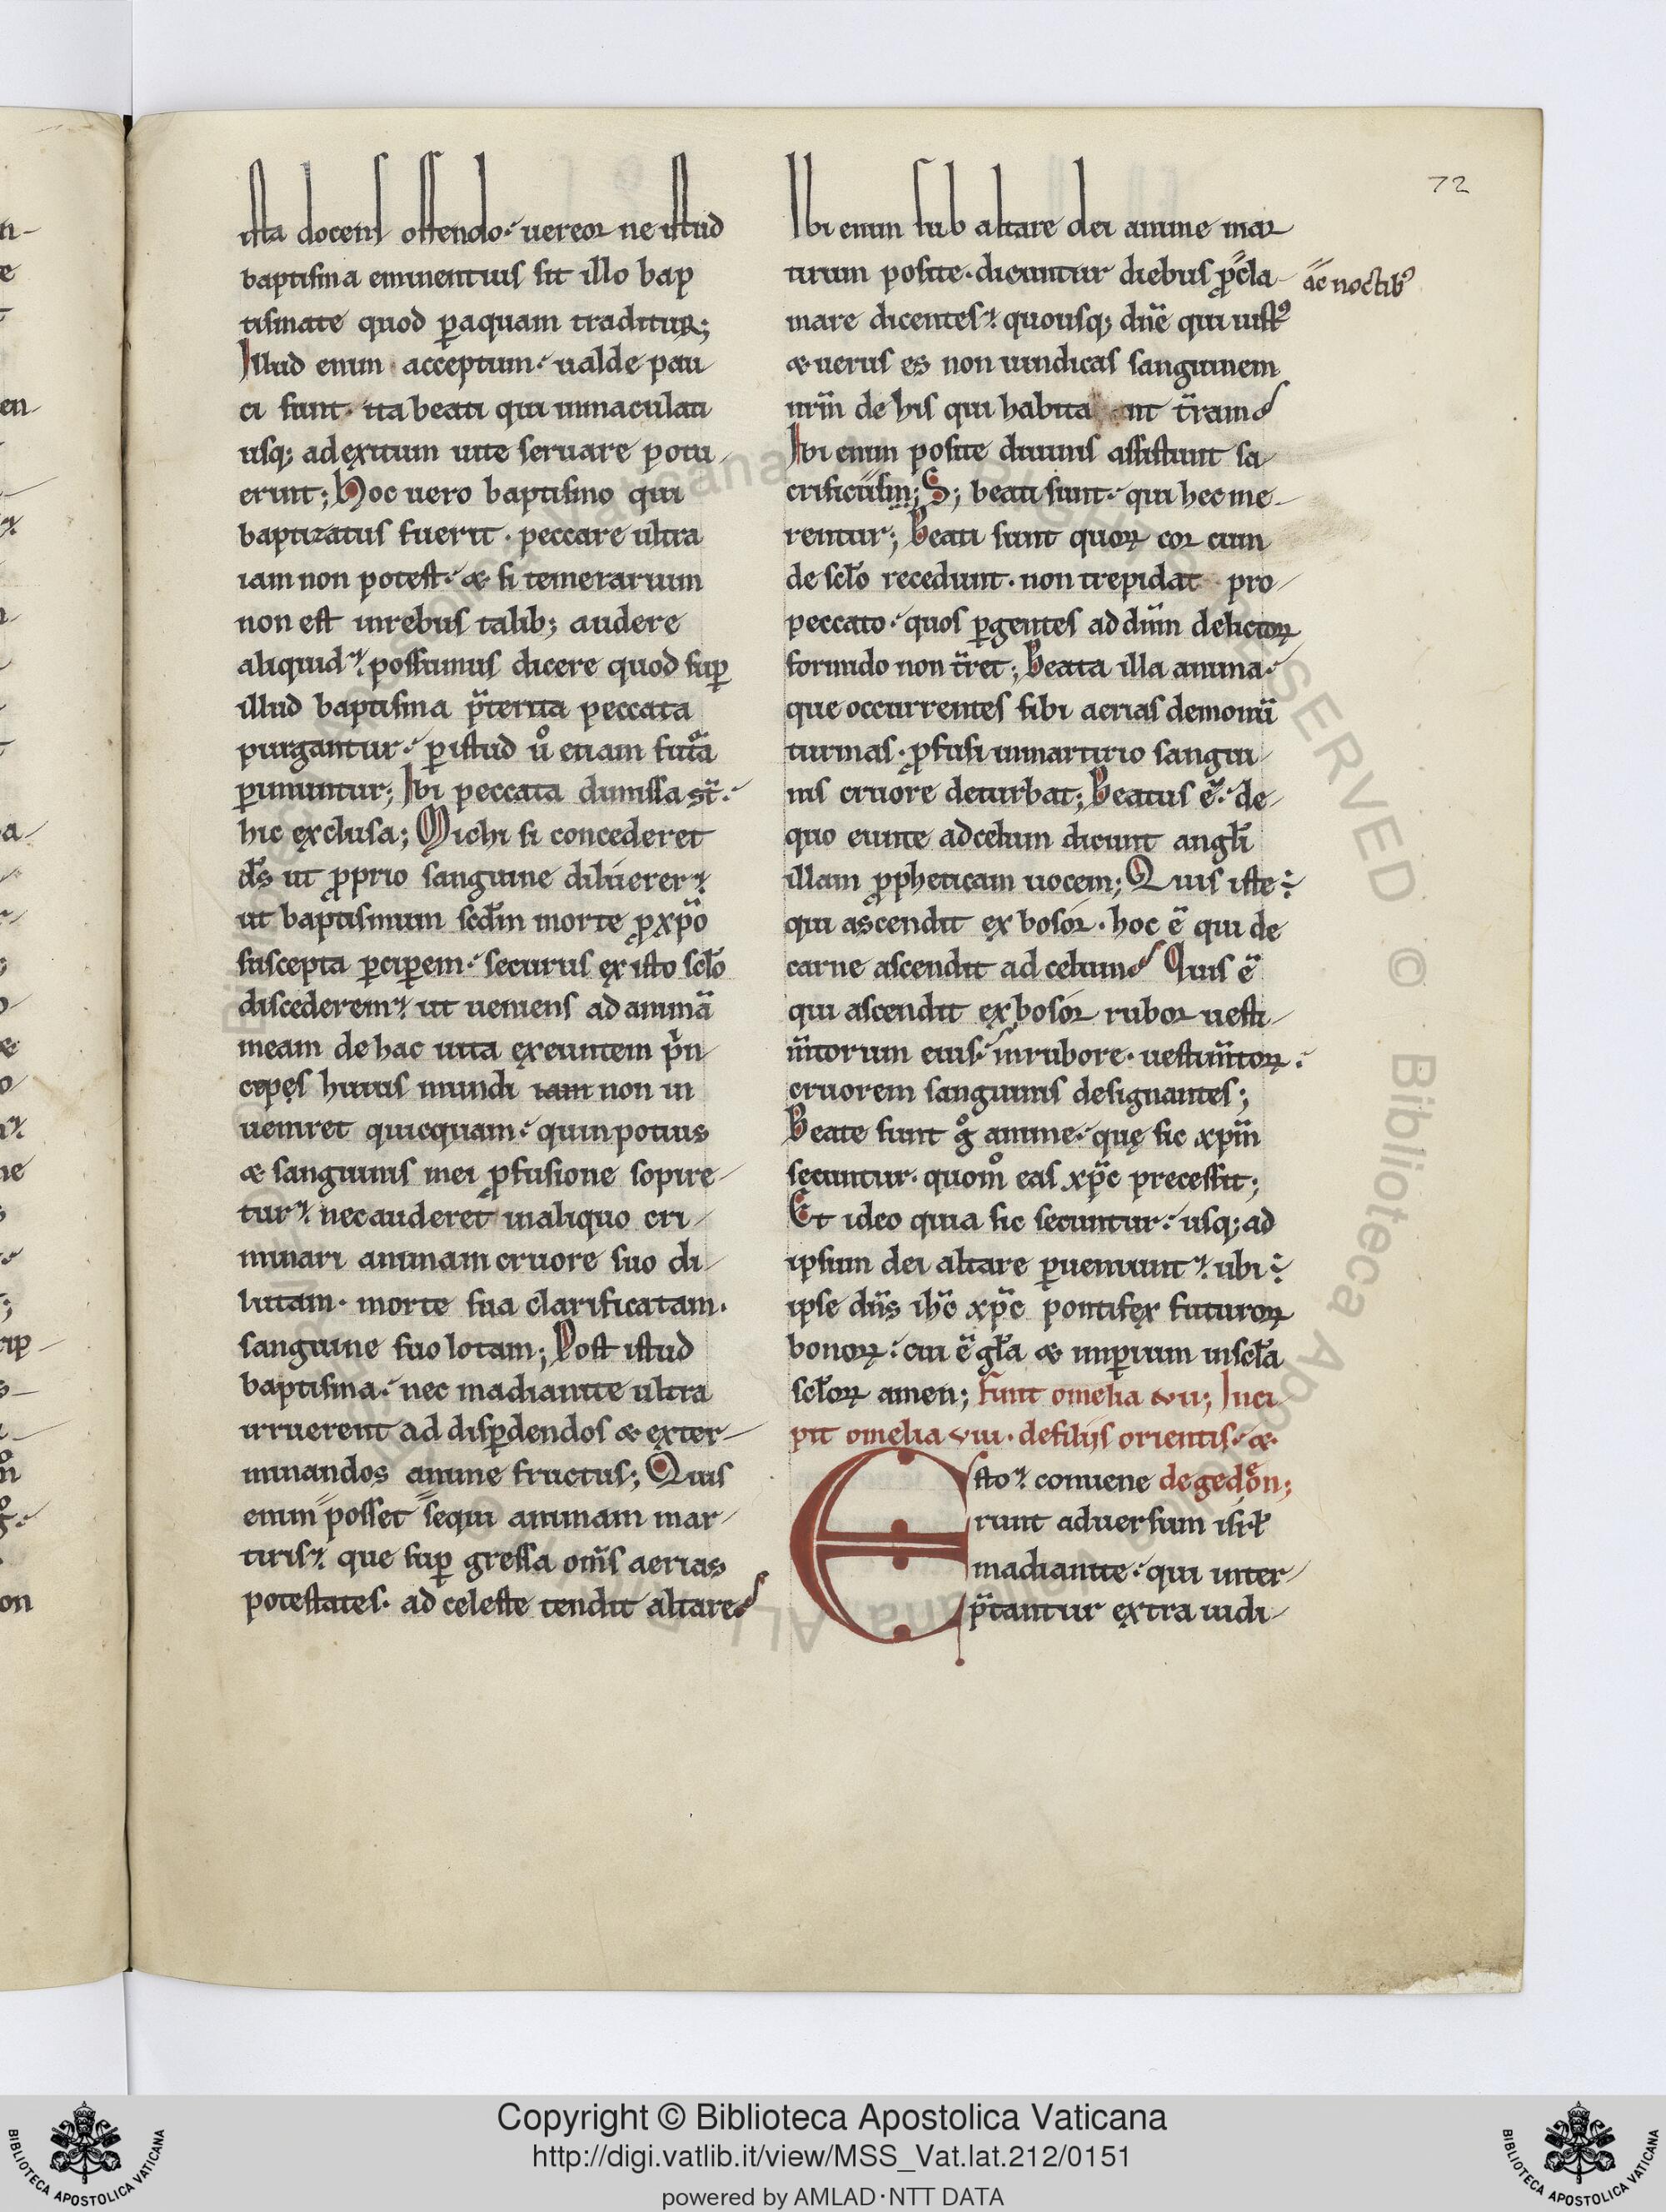 72
ista docens ostendo. uereor ne istud
baptisma eminentius sit illo bap
tismate quod ꝑaquam traditur;
Illud enim acceptum. ualde pau-
ci sunt. ita beati qui inmaculati
usq; ad exitum uite seruare potu-
erint; Hoc uero baptismo qui
baptizatus fuerit. peccare ultra
iam non potest. & si temerarium
non est inrebus talib; audere
aliquid. possumus dicere quod suꝑ
illud baptisma p̄terita peccata
purgantur. ꝑistud ůo etiam futa
ꝑimuntur; Ibi peccata dimissa st̄.
hic exclusa; Michi si concederet
d̄s ut ꝓprio sanguine diluerer.
ut baptismum scd̄m morte ꝓ xp̄o
suscepta ꝑciꝑem. securus ex isto sc̄lo
discederem. ut ueniens ad animā
meam de hac uita exeuntem p̄n-
cepes huius mundi iam non in
ueniret quicquam. quin potius
& sanguinis mei ꝓfusione sopire-
tur. nec auderet inaliquo cri-
minari animam cruore suo di-
lutam. morte sua clarificatam.
sanguine suo lotam; Post istud
baptisma. nec madianite ultra
irruerent ad disꝑdendos & exter-
minandos anime fructus; Quis
enim posset sequi animam mar-
tiris. que suꝑ gressa om̄s aerias
potestates. ad celeste tendit altare
Ibi enim sub altare dei anime mar
tirum posite. dicuntur diebus ꝓcla-
ac noctib'
mare dicentes. quousq; dn̄e qui iust'
& uerus es non uindicas sanguinem
nrm̄ de his qui habita nt t̄ram
Ibi enim posite diuinis assistunt sa-
crificiis; S; beati sunt. qui hec me-
rentur; Beati sunt quoꝝ cor cum
de sc̄lo recedunt. non trepidat pro-
peccato. quos ꝑgentes ad dn̄m delictoꝝ
formido non t̄ret; Beata illa anima.
que occurrentes sibi aerias demonū
turmas. ꝓfusi inmartirio sangui-
nis cruore deturbat; Beatus ē. de-
quo eunte ad celum dicunt angl̄i
illam ꝓpheticam uocem; Quis iste
qui ascendit ex bosor. hoc ē qui de
carne ascendit ad celum Quis ē
qui ascendit ex bosor rubor uesti-
m̄torum eius. inrubore. uestim̄toꝝ.
cruorem sanguinis designantes;
Beate sunt g° anime. quę sic xpm̄
secuntur. quom° eas xpc̄ precessit;
Et ideo quia sic secuntur. usq; ad
ipsum dei altare ꝑueniunt. ubi
ipse dn̄s ih̄c xpc̄ pontifex futuroꝝ
bonoꝝ. cui ē gl̄a & imꝑium insc̄la
sc̄loꝝ amen; Finit omelia vii; Inci
pit omelia viii. de filiis orientis. &
Esto. conuene de gedeon;
runt aduersum isrl̄
madianite. qui inter-
p̄tantur extra iudi-
Copyright © Biblioteca Apostolica Vaticana
http://digi.vatlib.it/view/MSS_Vat.lat.212/0151
powered by AMLAD·NTT DATA
BIBLIOTECA APOSTOLICA VATICANA
BIBLIOTECA APOSTOLICA VATICANA